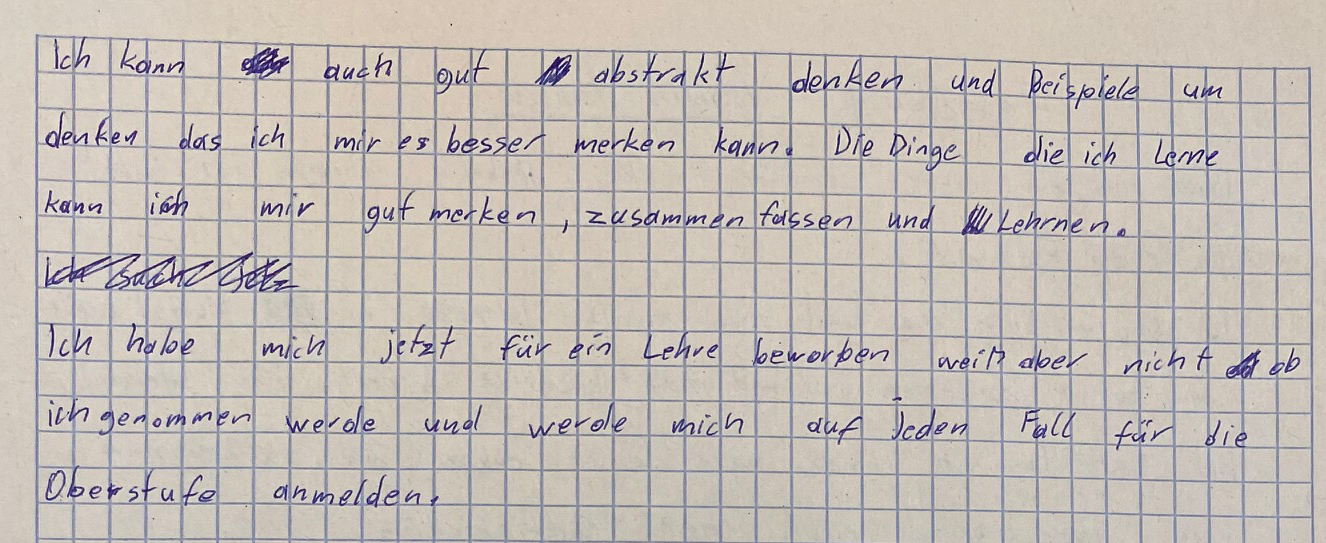 Ich kann auch gut abstrakt denken und Beispiele um
denken das ich mir es besser merken kann. Die Dinge die ich Lerne
kann ich mir gut merken, zusammen fassen und Lehrnen.
Ich habe mich jetzt für ein Lehre beworben weiß aber nicht ob
ich genommen werde und werde mich auf Jeden Fall für die
Oberstufe anmelden.